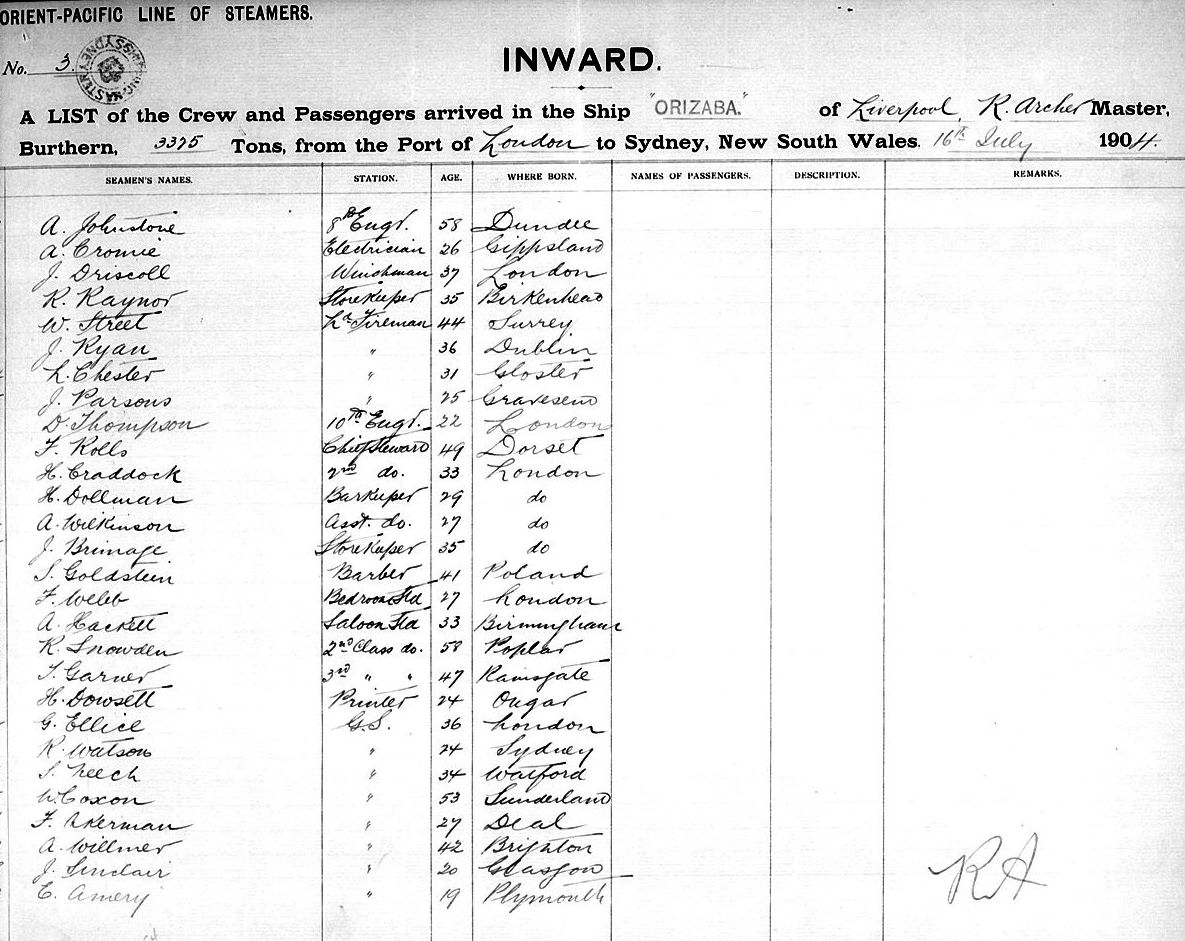 ORIENT-PACIFIC LINE OF STEAMERS.
No. 3.
INWARD.
A LIST of the Crew and Passengers arrived in the Ship "ORIZABA." of Liverpool, R. Archer Master,
Burthern, 3375 Tons, from the Port of London to Sydney, New South Wales. 16th July 1904.
SEAMEN'S NAMES. STATION. AGE. WHERE BORN. NAMES OF PASSENGERS. DESCRIPTION. REMARKS.
A. Johnstone 8th Engr. 58 Dundee
A. Cromie Electrician 26 Gippsland
J. Driscoll Winchman 37 London
R. Raynor Storekeeper 35 Birkenhead
W. Street Ld Fireman 44 Surrey
J. Ryan " 36 Dublin
L. Chester " 31 Gloster
J. Parsons " 25 Gravesend
D. Thompson 10th Engr. 22 London
F. Rolls Chief Steward 49 Dorset
H. Craddock 2nd do. 33 London
H. Dollman Barkeeper 29 do
A. Wilkinson Asst. do. 27 do
J. Brimage Storekeeper 35 do
S. Goldstein Barber 41 Poland
F. Webb Bedroom Std 27 London
A. Hackett Saloon Std 33 Birmingham
R. Snowden 2nd Class do. 58 Poplar
T. Garner 3rd " " 47 Ramsgate
H. Dowsett Printer 24 Ongar
G. Ellice G.S. 36 London
R. Watson " 24 Sydney
S. Leech " 34 Watford
W. Coxon " 53 Sunderland
F. Akerman " 27 Deal
A. Willmer " 42 Brighton
J. Sinclair " 20 Glasgow
E. Amery " 19 Plymouth
RA